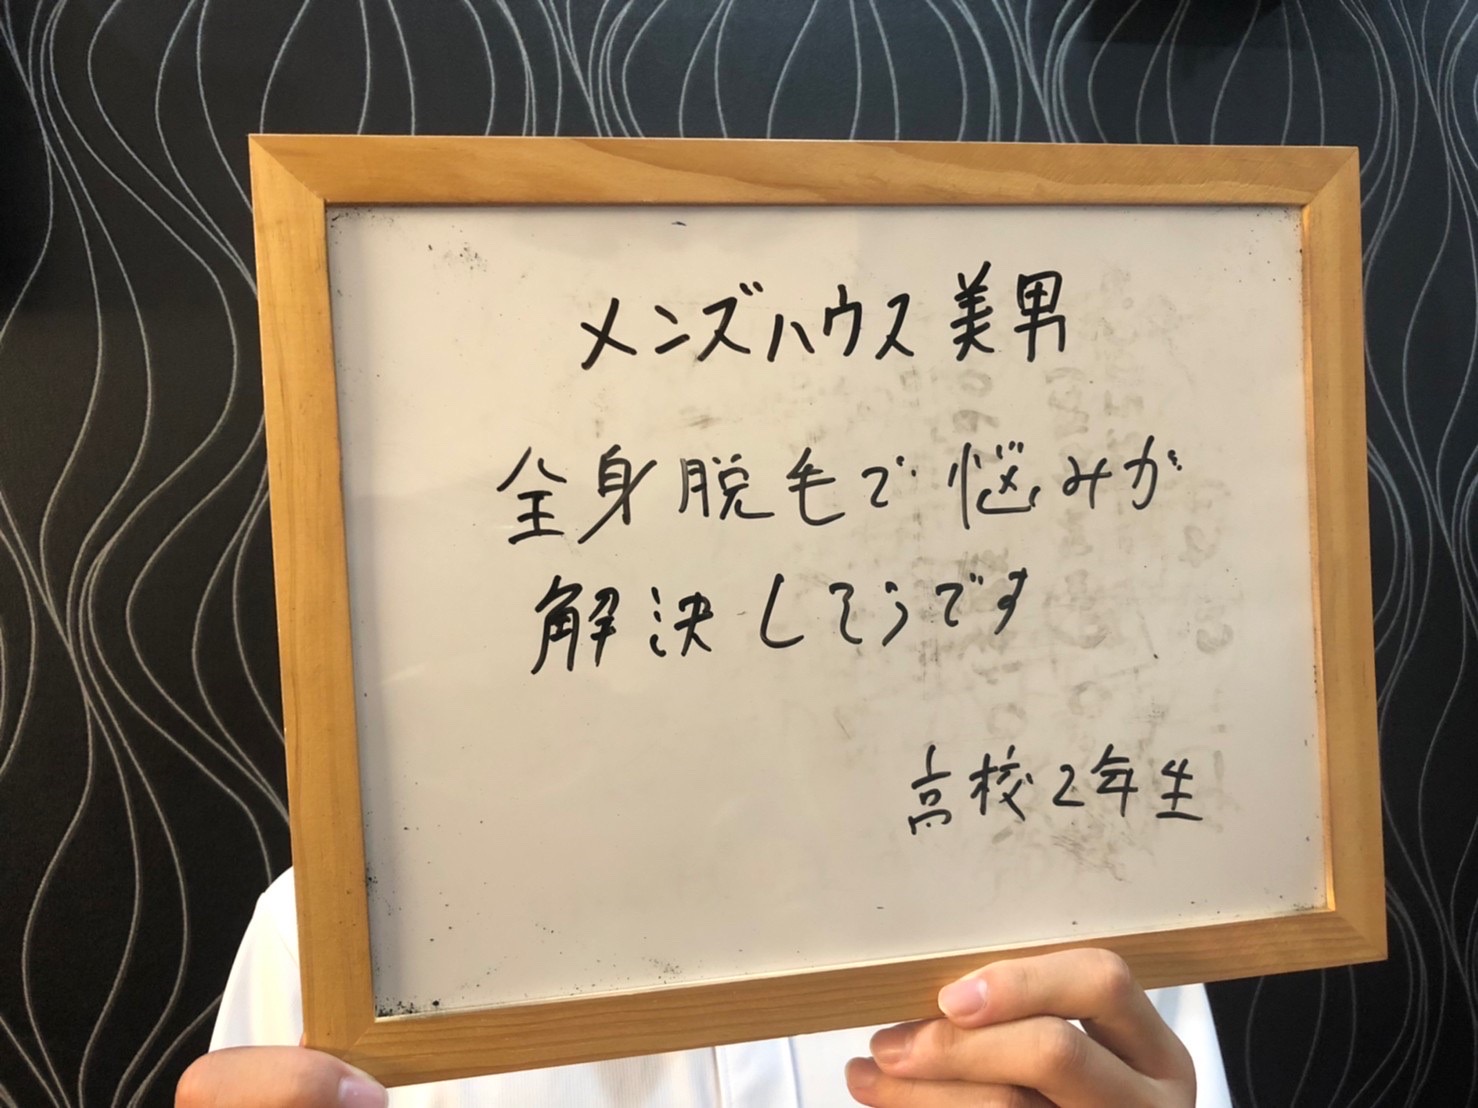 メンズハウス美男
全身脱毛で悩みが
解決してうです
高校2年生